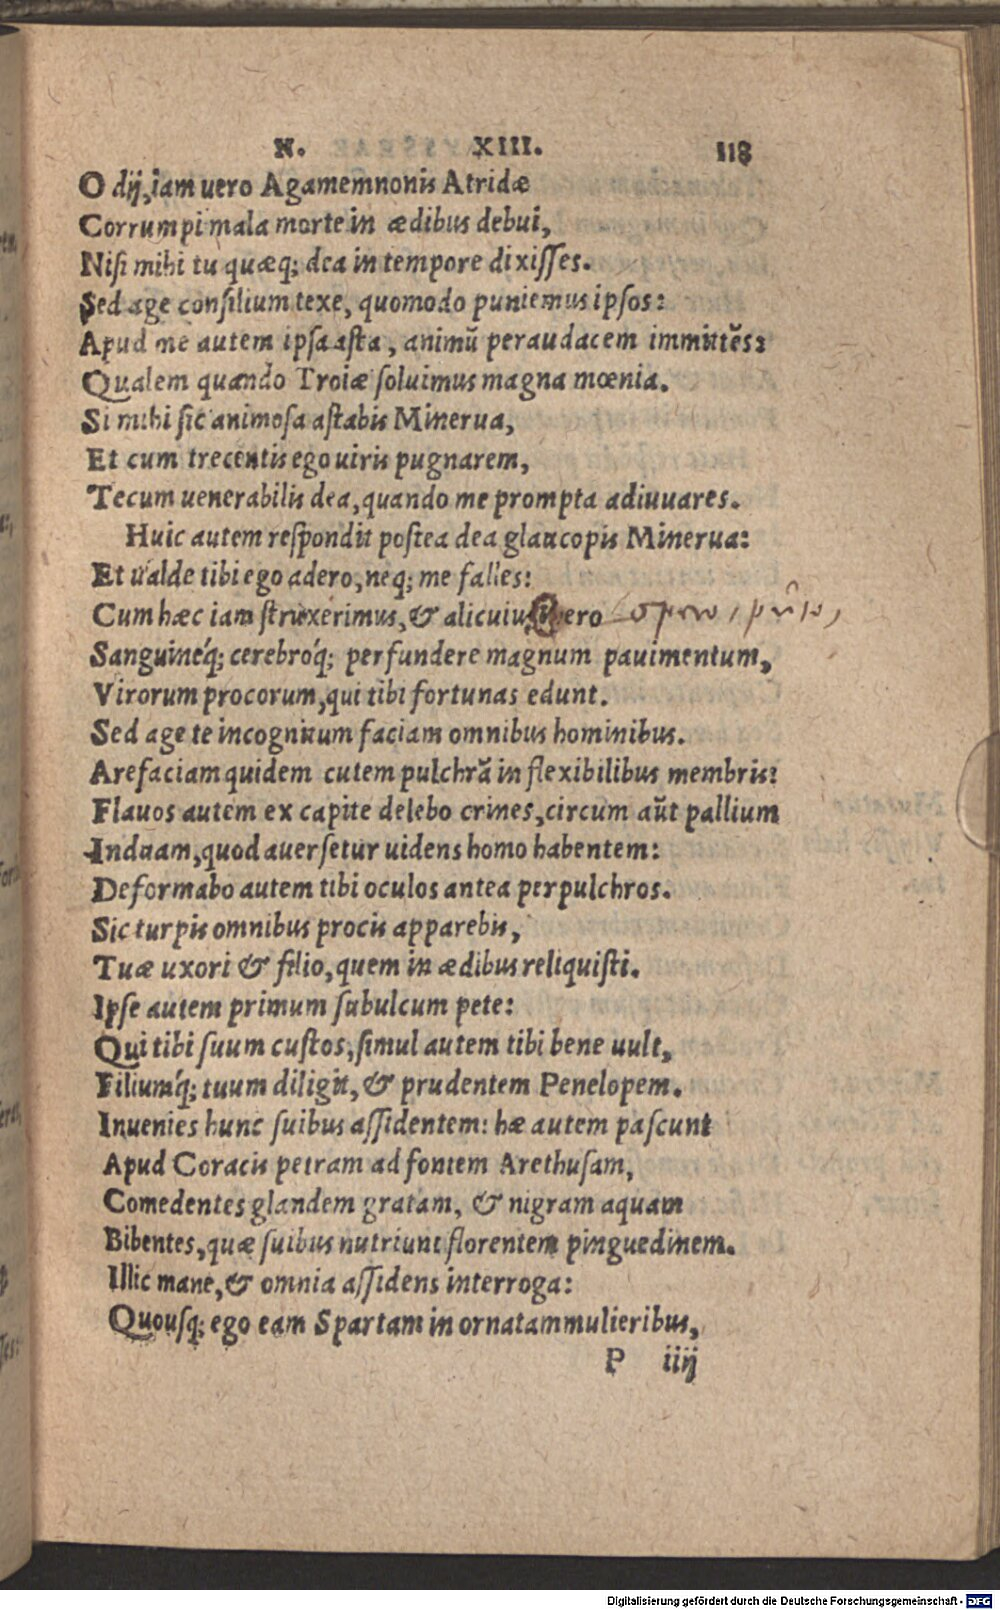 N. XIII. 118
O dij, iam uero Agamemnonis Atridæ
Corrumpi mala morte in ædibus debui,
Nisi mihi tu quæq; dea in tempore dixisses.
Sed age consilium texe, quomodo puniemus ipsos:
Apud me autem ipsa asta, animũ peraudacem immittẽs:
Qualem quando Troiæ soluimus magna mœnia.
Si mihi sic animosa astabis Minerua,
Et cum trecentis ego uiris pugnarem,
Tecum uenerabilis dea, quando me prompta adiuuares.
Huic autem respondit postea dea glaucopis Minerua:
Et ualde tibi ego adero, neq; me falles:
Cum hæc iam struxerimus, & alicuius uero
Sanguineq́; cerebroq́; perfundere magnum pauimentum,
Virorum procorum, qui tibi fortunas edunt.
Sed age te incognitum faciam omnibus hominibus.
Arefaciam quidem cutem pulchrã in flexibilibus membris:
Flauos autem ex capite delebo crines, circum aũt pallium
Induam, quod auersetur uidens homo habentem:
Deformabo autem tibi oculos antea perpulchros.
Sic turpis omnibus procis apparebis,
Tuæ uxori & filio, quem in ædibus reliquisti.
Ipse autem primum subulcum pete:
Qui tibi suum custos, simul autem tibi bene uult,
Filiumq́; tuum diligit, & prudentem Penelopem.
Inuenies hunc suibus assidentem: hæ autem pascunt
Apud Coracis petram ad fontem Arethusam,
Comedentes glandem gratam, & nigram aquam
Bibentes, quæ suibus nutriunt florentem pinguedinem.
Illic mane, & omnia assidens interroga:
Quousq; ego eam Spartam in ornatam mulieribus,
P iiij
Digitalisierung gefördert durch die Deutsche Forschungsgemeinschaft - DFG